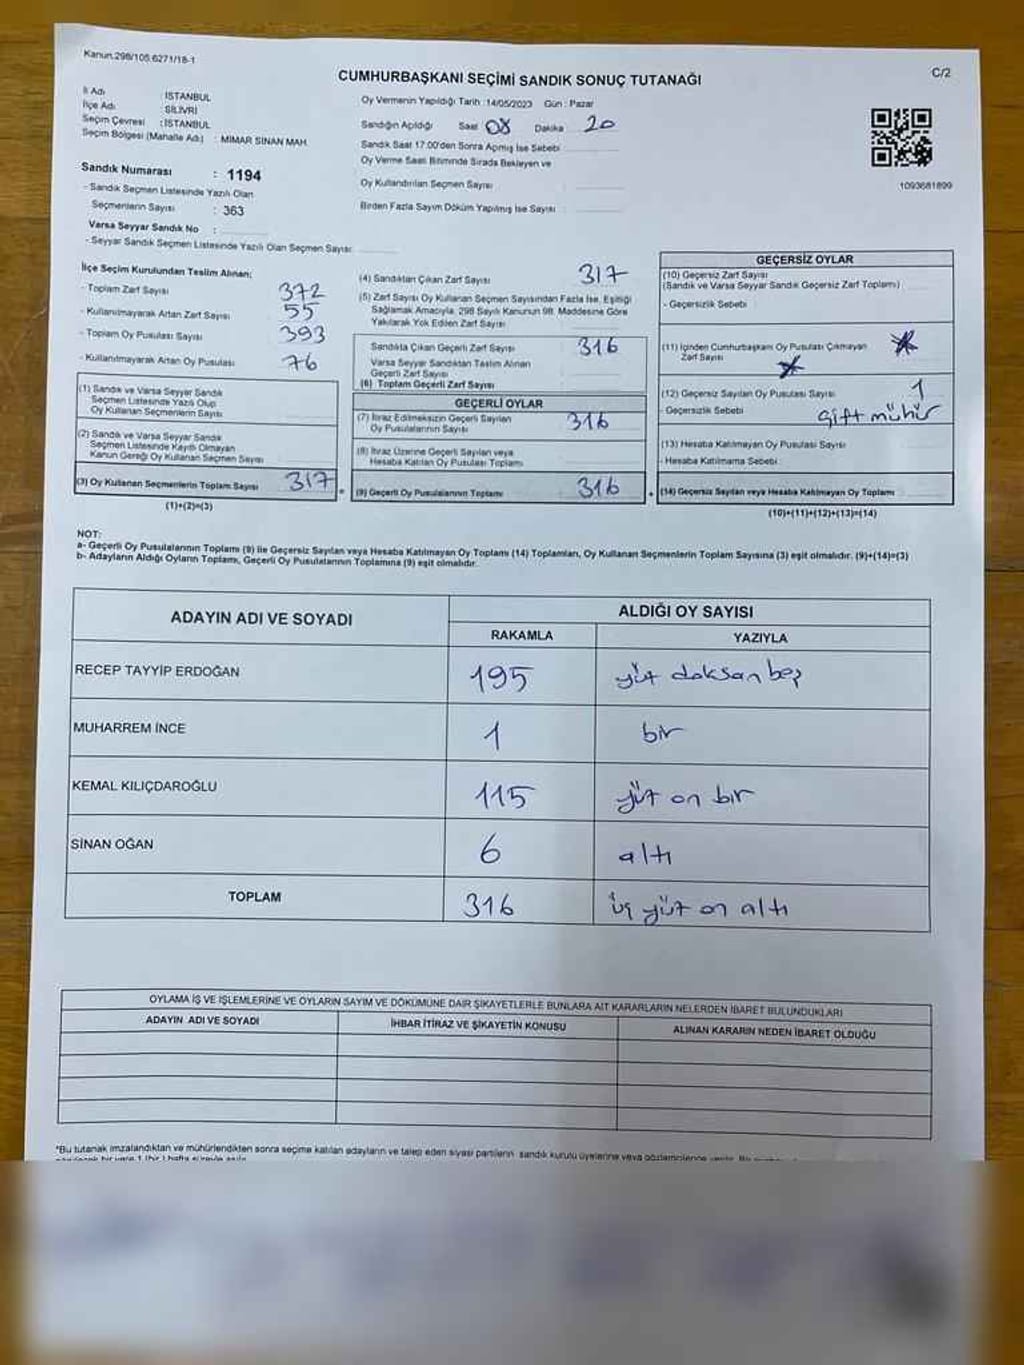 Kanun.298/105.6271/18-1
CUMHURBAŞKANI SEÇİMİ SANDIK SONUÇ TUTANAĞI
C/2
İl Adı : İSTANBUL
İlçe Adı : SİLİVRİ
Seçim Çevresi : İSTANBUL
Seçim Bölgesi (Mahalle Adı) : MİMAR SİNAN MAH.
Sandık Numarası : 1194
- Sandık Seçmen Listesinde Yazılı Olan
Seçmenlerin Sayısı : 363
Varsa Seyyar Sandık No :
- Seyyar Sandık Seçmen Listesinde Yazılı Olan Seçmen Sayısı:
Oy Vermenin Yapıldığı Tarih : 14/05/2023 Gün : Pazar
Sandığın Açıldığı Saat 08 Dakika 20
Sandık Saat 17.00'den Sonra Açmış İse Sebebi
Oy Verme Saati Bitiminde Sırada Bekleyen ve
Oy Kullandırılan Seçmen Sayısı :
Birden Fazla Sayım Döküm Yapılmış İse Sayısı :
1093681899
İlçe Seçim Kurulundan Teslim Alınan;
- Toplam Zarf Sayısı 372
- Kullanılmayarak Artan Zarf Sayısı 55
- Toplam Oy Pusulası Sayısı 393
- Kullanılmayarak Artan Oy Pusulası 76
(1) Sandık ve Varsa Seyyar Sandık
Seçmen Listesinde Yazılı Olup
Oy Kullanan Seçmenlerin Sayısı
(2) Sandık ve Varsa Seyyar Sandık
Seçmen Listesinde Kayıtlı Olmayan
Kanun Gereği Oy Kullanan Seçmen Sayısı
(3) Oy Kullanan Seçmenlerin Toplam Sayısı 317
(1)+(2)=(3)
(4) Sandıktan Çıkan Zarf Sayısı 317
(5) Zarf Sayısı Oy Kullanan Seçmen Sayısından Fazla İse, Eşitliği
Sağlamak Amacıyla, 298 Sayılı Kanunun 98. Maddesine Göre
Yakılarak Yok Edilen Zarf Sayısı
Sandıkta Çıkan Geçerli Zarf Sayısı 316
Varsa Seyyar Sandıktan Teslim Alınan
Geçerli Zarf Sayısı
(6) Toplam Geçerli Zarf Sayısı
GEÇERLİ OYLAR
(7) İtiraz Edilmeksizin Geçerli Sayılan
Oy Pusulalarının Sayısı 316
(8) İtiraz Üzerine Geçerli Sayılan veya
Hesaba Katılan Oy Pusulası Toplamı
(9) Geçerli Oy Pusulalarının Toplamı 316
GEÇERSİZ OYLAR
(10) Geçersiz Zarf Sayısı
(Sandık ve Varsa Seyyar Sandık Geçersiz Zarf Toplamı)
- Geçersizlik Sebebi
(11) İçinden Cumhurbaşkanı Oy Pusulası Çıkmayan
Zarf Sayısı
(12) Geçersiz Sayılan Oy Pusulası Sayısı 1
- Geçersizlik Sebebi çift mühür
(13) Hesaba Katılmayan Oy Pusulası Sayısı
- Hesaba Katılmama Sebebi
(14) Geçersiz Sayılan veya Hesaba Katılmayan Oy Toplamı
(10)+(11)+(12)+(13)=(14)
NOT:
a- Geçerli Oy Pusulalarının Toplamı (9) ile Geçersiz Sayılan veya Hesaba Katılmayan Oy Toplamı (14) Toplamları, Oy Kullanan Seçmenlerin Toplam Sayısına (3) eşit olmalıdır. (9)+(14)=(3)
b- Adayların Aldığı Oyların Toplamı, Geçerli Oy Pusulalarının Toplamına (9) eşit olmalıdır.
ADAYIN ADI VE SOYADI ALDIĞI OY SAYISI
RAKAMLA YAZIYLA
RECEP TAYYİP ERDOĞAN 195 yüz doksan beş
MUHARREM İNCE 1 bir
KEMAL KILIÇDAROĞLU 115 yüz on bir
SİNAN OĞAN 6 altı
TOPLAM 316 üç yüz on altı
OYLAMA İŞ VE İŞLEMLERİNE VE OYLARIN SAYIM VE DÖKÜMÜNE DAİR ŞİKAYETLERLE BUNLARA AİT KARARLARIN NELERDEN İBARET BULUNDUKLARI
ADAYIN ADI VE SOYADI İHBAR İTİRAZ VE ŞİKAYETİN KONUSU ALINAN KARARIN NEDEN İBARET OLDUĞU
*Bu tutanak imzalandıktan ve mühürlendikten sonra seçime katılan adayların ve talep eden siyasi partilerin sandık kurulu üyelerine veya gözlemcilerine verilir. Bu